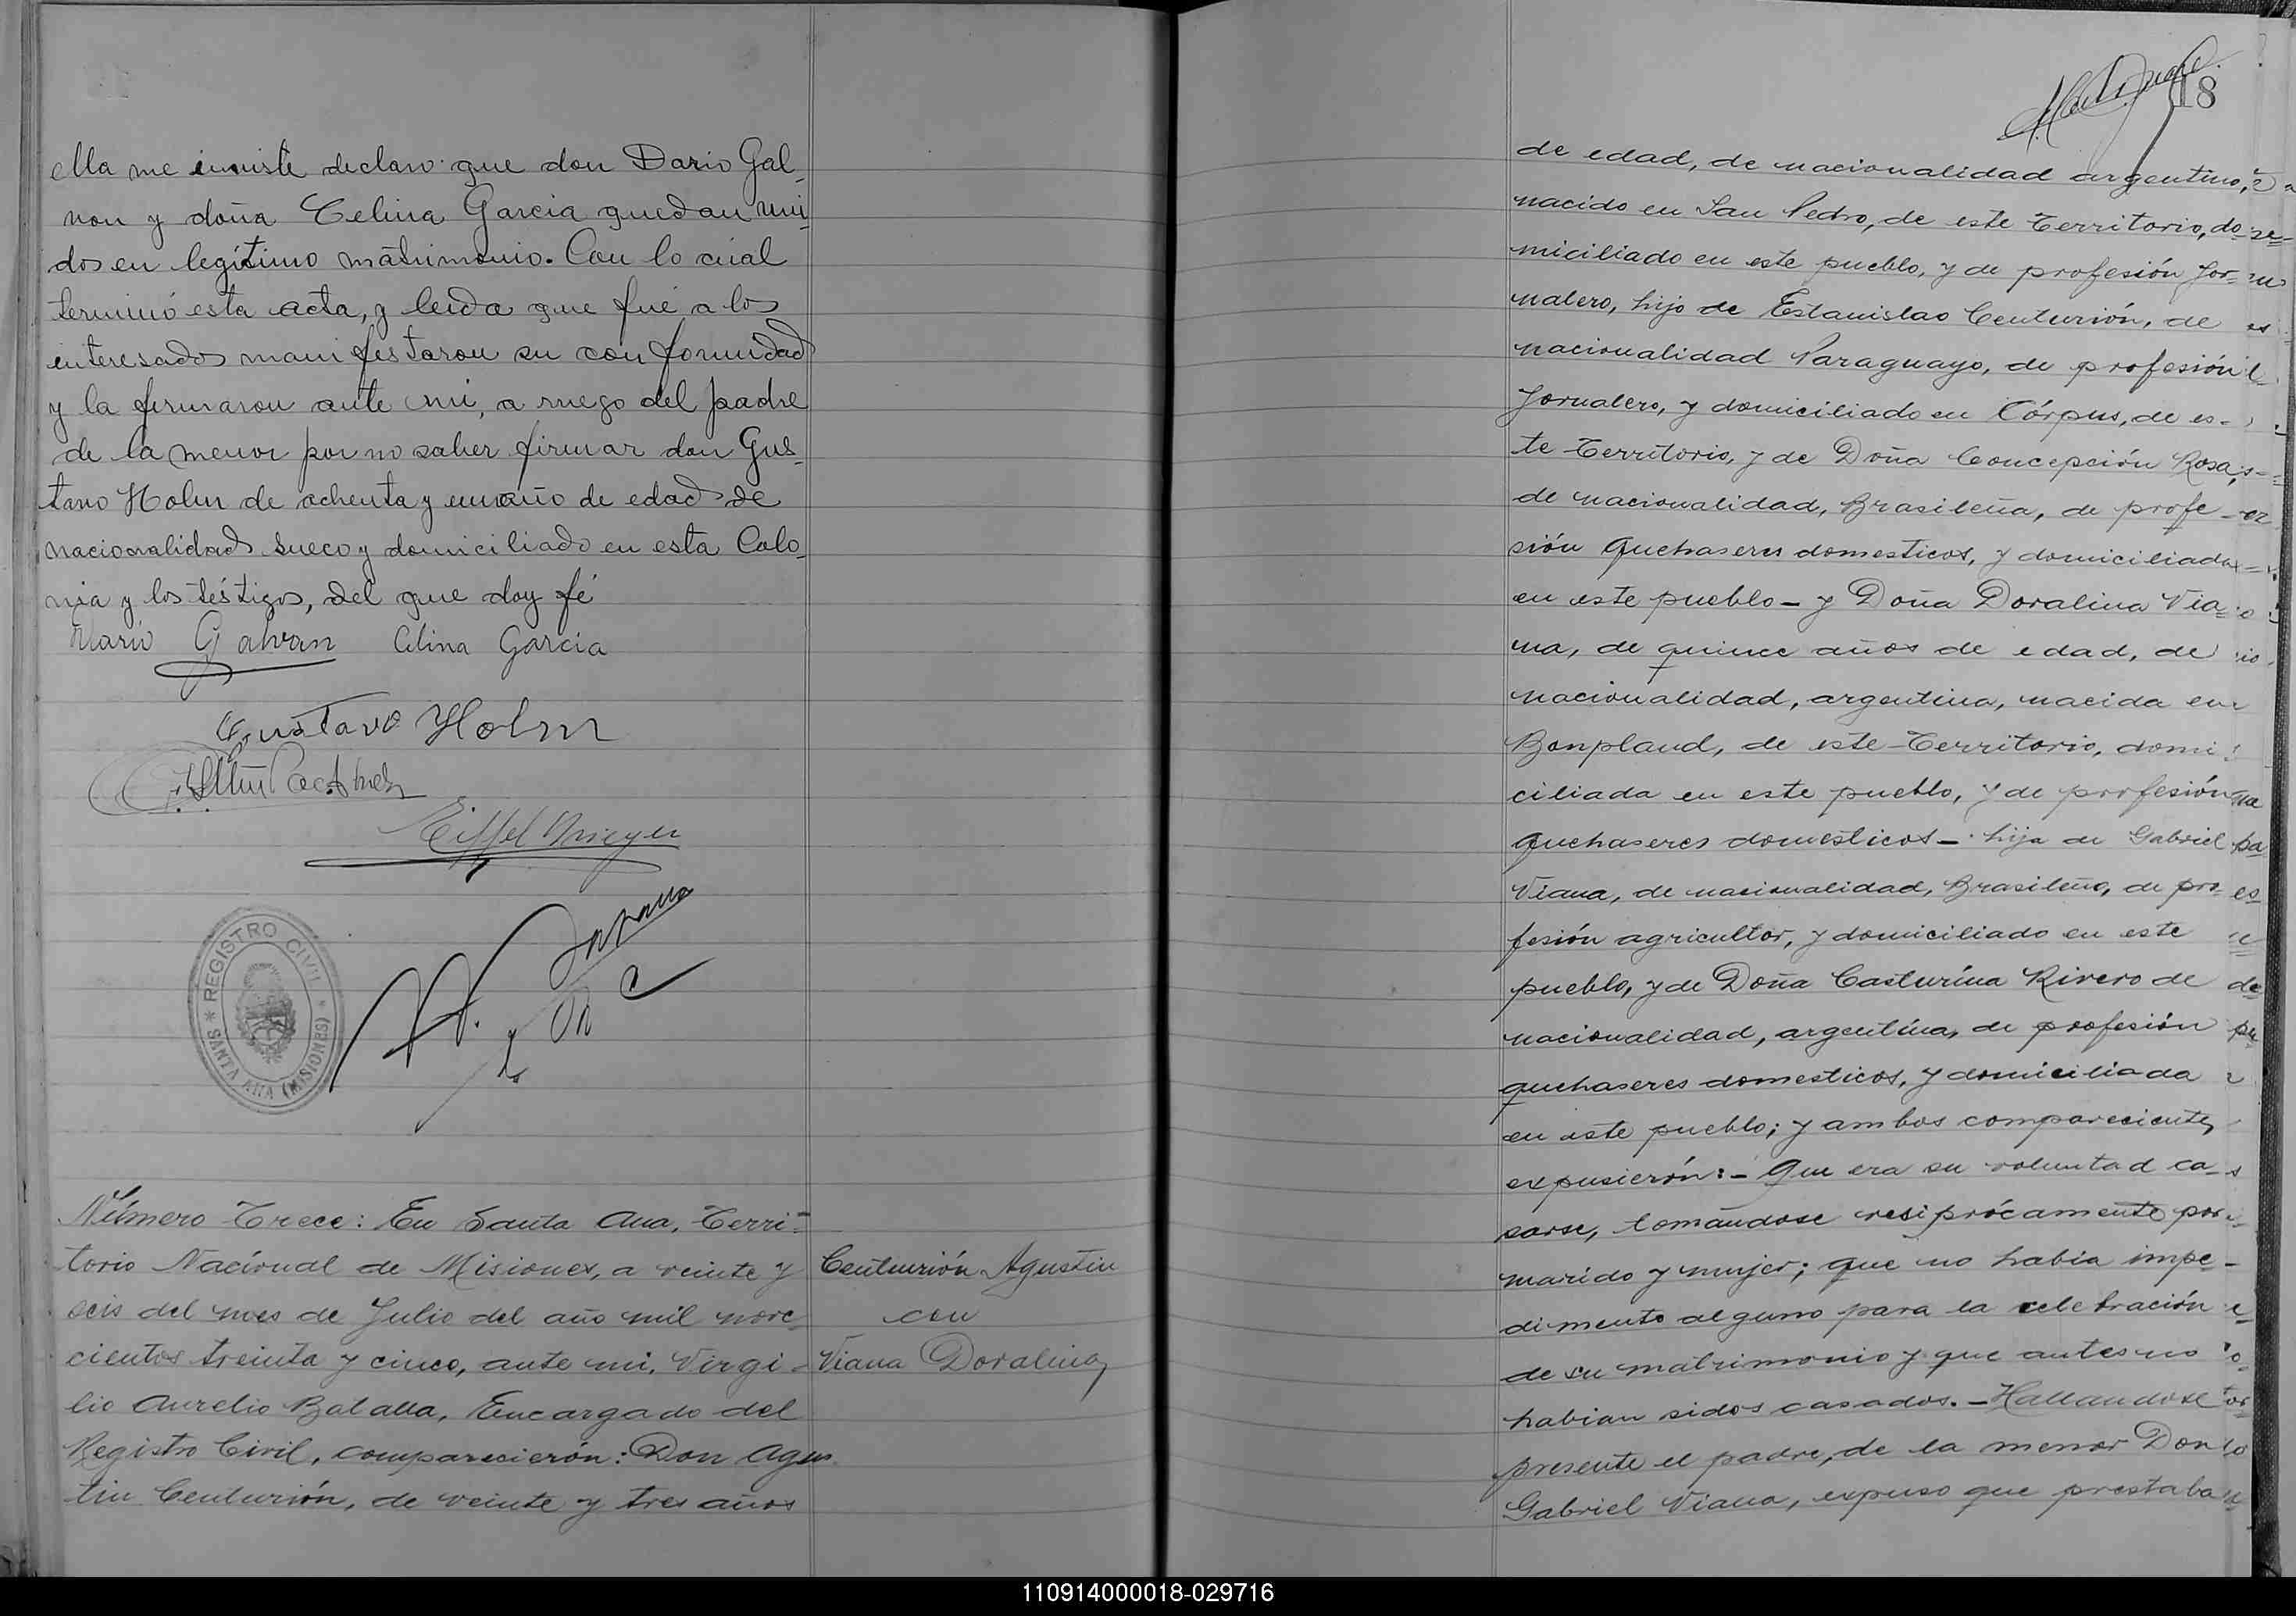 ella me inviste declaro que don Dario Gal-
van y doña Celina Garcia quedan uni-
dos en legítimo mátrimonio. Con lo cúal
terminó esta acta, y leida que fué a los
interesados manifestaron su conformidad
y la firmaron ante mi, a ruego del padre
de la menor por no saber firmar don Gus-
tavo Holm de ochenta y un año de edad de
nacionalidad sueco y domiciliado en esta Colo-
nia y los téstigos, del que doy fé
Dario Galvan Celina Garcia
Gustavo Holm
REGISTRO CIVIL
* SANTA ANA (MISIONES) *
Número Trece: En Santa Ana, Terri-
torio Nacíonal de Misiones, a veinte y
seis del mes de Julio del año mil nove-
cientos treinta y cinco, ante mi, Virgi-
lio Aurelio Balalla, Encargado del
Registro Civil, comparecierón: Don Agus
tin Centurión, de veinte y tres años
Centurión Agustin
con
Viana Doralina
18
de edad, de nacionalidad argentino,
nacido en San Pedro, de este Territorio, do-
miciliado en este pueblo, y de profesión Jor-
nalero, hijo de Estanislao Centurión, de
nacionalidad Paraguayo, de profesión
Jornalero, y domiciliado en Córpus, de es-
te Territorio, y de Doña Concepción Rosa,
de nacionalidad, Brasileña, de profe-
sión quehaseres domesticos, y domiciliada
en este pueblo - y Doña Doralina Via-
na, de quince años de edad, de
nacionalidad, argentina, nacida en
Bonpland, de este Territorio, domi
ciliada en este pueblo, y de profesión
quehaseres domesticos -. hija de Gabriel
Viana, de nacionalidad, Brasileño, de pro-
fesión agricultor, y domiciliado en este
pueblo, y de Doña Casturína Rivero de
nacionalidad, argentína, de profesión
quehaseres domesticos, y domiciliada
en este pueblo; y ambos compareciente,
expusierón: - Que era su voluntad ca-
sarse, tomándose resiprócamente por
marido y mujer; que no habia impe-
dimento alguno para la celebración
de su mátrimonio y que antes no
habian sidos casados. - Hallandose
presente el padre, de la menor Don
Gabriel Viana, expuso que prestaba
110914000018-029716